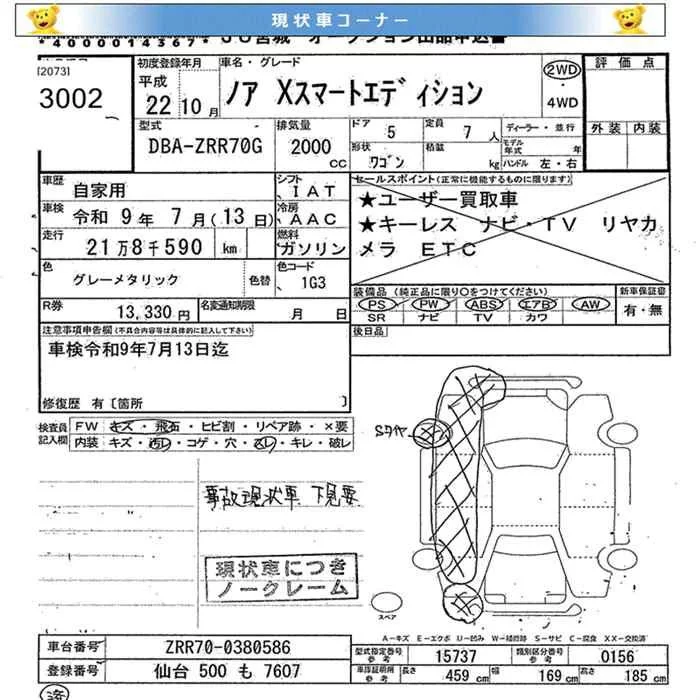 現状車コーナー
*4000014367* JU宮城 オークション出品申込書
[2073]
3002
初度登録年月
平成
22年10月
車名・グレード
ノア Xスマートエディション
2WD
・
4WD
評価点
外装 内装
型式
DBA-ZRR70G
排気量
2000
CC
ドア 5
定員 7 人
形状 ワゴン
積載 kg
ディーラー・並行
モデル年式 年
ハンドル 左・右
車歴 自家用
シフト IAT
車検 令和 9年 7月(13日)
冷房 AAC
走行 21万8千590 km
燃料 ガソリン
色 グレーメタリック
色替
色コード 1G3
R券 13,330円
名変通知期限 月 日
セールスポイント(正常に機能するものに限ります)
★ユーザー買取車
★キーレス ナビ・TV リヤカ
メラ ETC
装備品(純正品に限り○をつけてください)
PS PW ABS エアB AW
SR ナビ TV カワ
新車保証書
有・無
後日品
注意事項申告欄(不具合内容等は具体的に記入して下さい)
車検令和9年7月13日迄
修復歴 有〔箇所 〕
検査員記入欄
FW キズ・飛石・ヒビ割・リペア跡・×要
内装 キズ・汚れ・コゲ・穴・スレ・キレ・破レ
Sタイヤ
事故現状車 下見要
現状車につき
ノークレーム
スペア
A-キズ E-エクボ U-凹み W-補修跡 S-サビ C-腐食 XX-交換済
車台番号 ZRR70-0380586
登録番号 仙台 500 も 7607
型式指定番号 参考 15737
類別区分番号 参考 0156
車庫証明用 参考 長さ 459 cm 幅 169 cm 高さ 185 cm